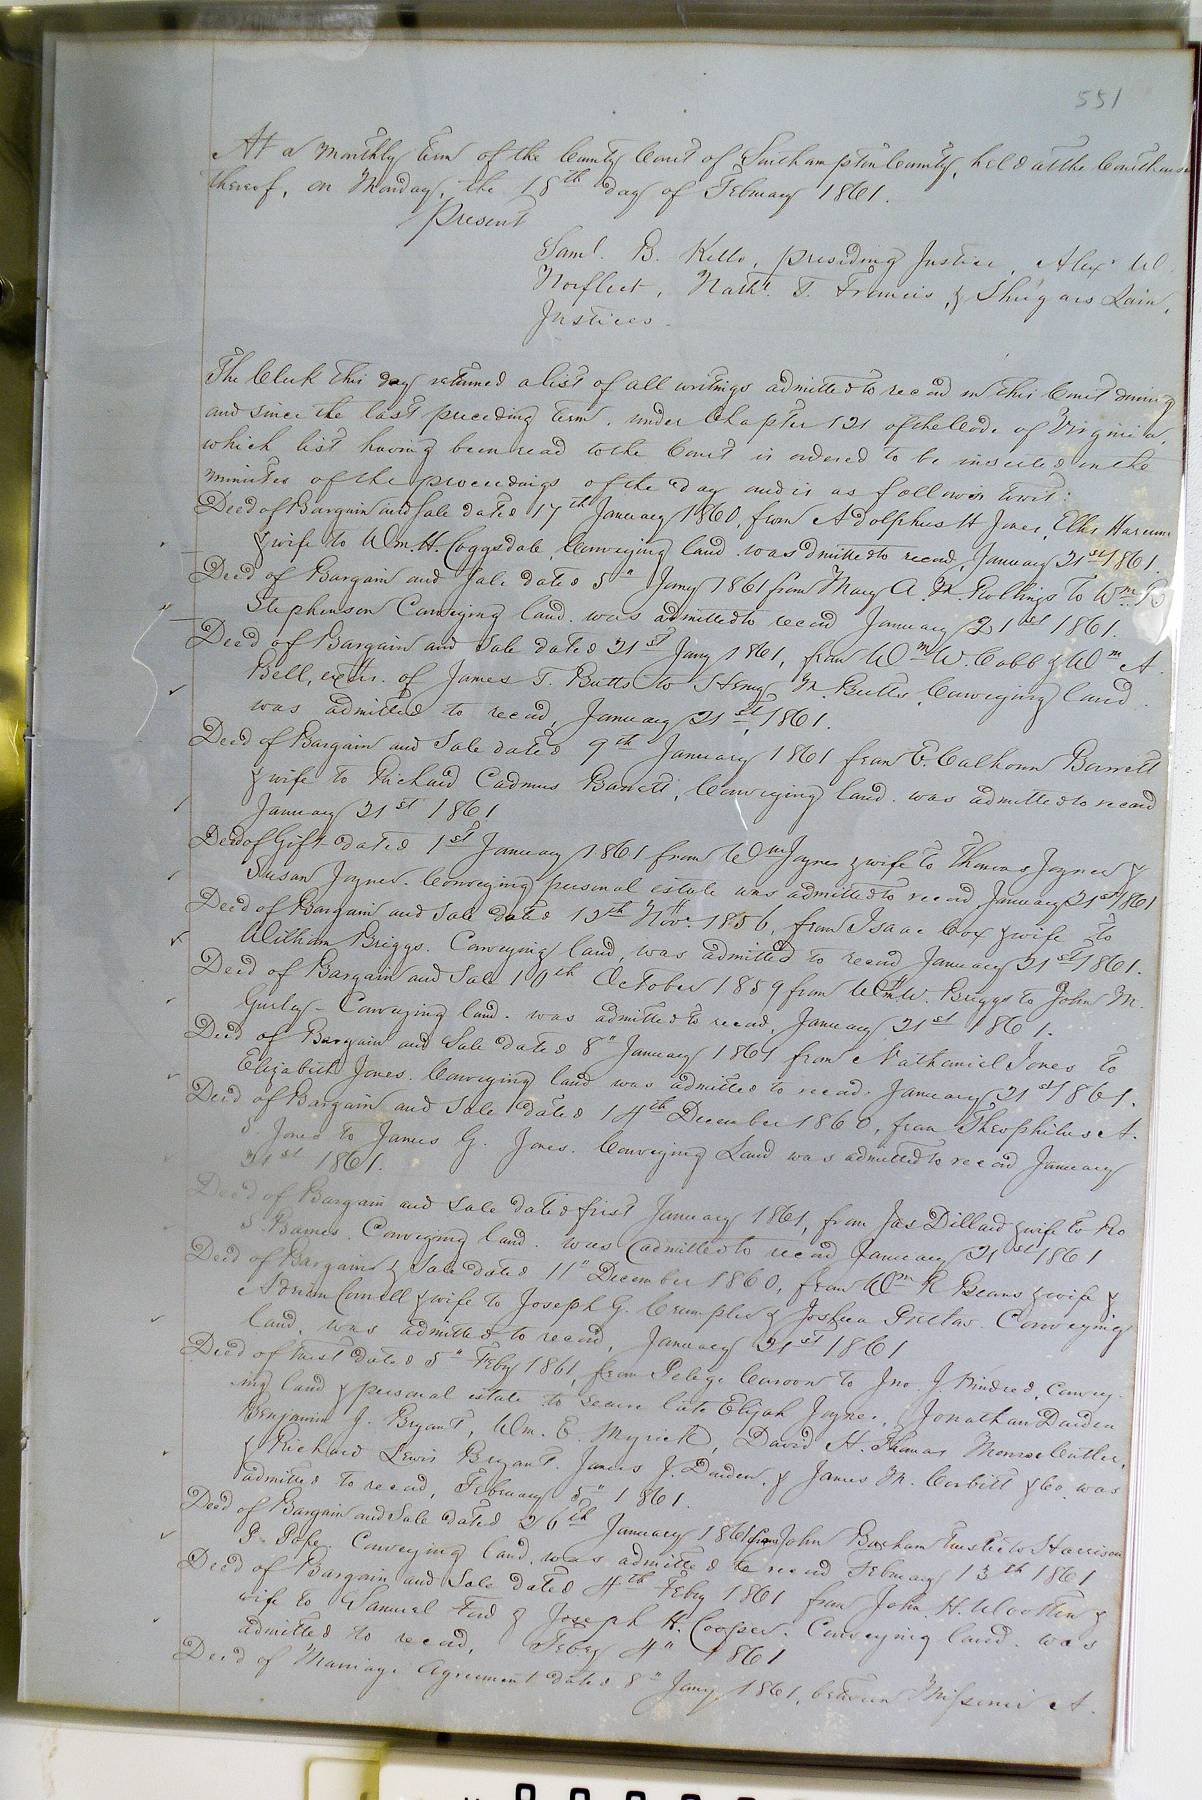 551
At a Monthly term of the County Court of Southampton County, held at the Courthouse
thereof, on Monday, the 18th day of February 1861.
Present
Saml. B. Kello, presiding Justice, Alexr W.
Norfleet, Nathl. T. Francis, & Shugars Lain,
Justices.
The Clerk this day returned a list of all writings admitted to record in this Court during
and since the last preceding term, under Chapter 121 of the Code of Virginia,
which list having been read to the Court is ordered to be inserted in the
minutes of the proceedings of the day and is as follows towit:
Deed of Bargain and Sale dated 17th January 1860, from Adolphus H Jones,
& wife to Wm. H. Coggsdale, Conveying land was admitted to record, January 21st 1861.
Deed of Bargain and Sale dated 5" Jany 1861 from Mary A. M. Rollings to Wm
Stephenson Conveying land. was admitted to record January 21st 1861.
Deed of Bargain and Sale dated 21st Jany 1861, from Wm W. Cobb & Wm A.
Bell, exttr. of James T. Butts to Henry M. Butts, Conveying land
was admitted to record, January 21st, 1861.
Deed of Bargain and Sale dated 9th January 1861 from E. Calhoun Barrett
& wife to Richard Cadmus Barrett, Conveying land. was admitted to record
January 21st 1861
Deed of Gift dated 1st January 1861 from Wm Joyner & wife to Thomas Joyner &
Susan Joyner. Conveying personal estate was admitted to record January 21st 1861
Deed of Bargain and Sale dated 12th Novr. 1856, from Isaac Cox & wife to
William Briggs. Conveying land, was admitted to record January 21st 1861.
Deed of Bargain and Sale 10th October 1859 from Wm W. Briggs to John M.
Gurley - Conveying land. was admitted to record, January 21st 1861.
Deed of Bargain and Sale dated 8" January 1861 from Nathaniel Jones to
Elizabeth Jones. Conveying land was admitted to record. January 21st 1861.
Deed of Bargain and Sale dated 14th December 1860, from Theophilus A.
S Jones to James G. Jones. Conveying Land was admitted to record January
21st 1861.
Deed of Bargain and Sale dated first January 1861, from Jas Dillard & wife to Ro
S. Barnes. Conveying land. was admitted to record January 21st 1861
Deed of Bargain & Sale dated 11" December 1860, from Wm R Beans & wife &
Cornell & wife to Joseph G. Crumpler & Joshua Pretlow. Conveying
land, was admitted to record, January 21st 1861
Deed of trust dated 5" Feby 1861, from Pelege to Jno. J. Kindred, Convey-
ing land & personal estate to secure Elijah Joyner, Jonathan Darden
Benjamin J. Bryant, Wm. E. Myrick, David H. Thomas Monroe Cutler,
& Richard Lewis Bryant. James J. Darden. & James M. Corbitt & Co. was
admitted to record, February 5" 1861.
Deed of Bargain and Sale dated 26th January 1861 from John Barham Trustee to Harrison
P. Pope. Conveying land. was admitted to record February 13th 1861
Deed of Bargain and Sale dated 4th Feby 1861 from John. H. Wootten &
wife to Samuel Ford & Joseph H. Cooper. Conveying land. was
admitted to record, Feby 4" 1861
Deed of Marriage Agreement dated 8" Jany 1861, between Missouri A.